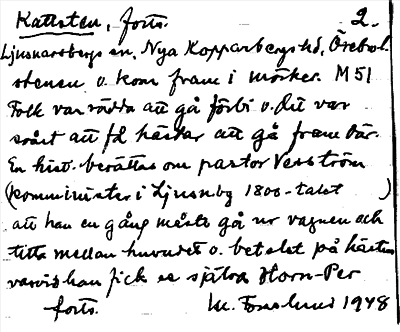 Kattsten, forts. 2.
Ljusnarsbergs sn, Nya Kopparbergs hd, Örebro l.
stenen o. kom fram i mörker. M51
Folk var rädda att gå förbi o. det var
svårt att få hästar att gå fram där.
En hist. berättas om pastor Vesström
(komminister i Ljusnbg 1800-talet )
att han en gång måste gå ur vagnen och
titta mellan huvudet o. betslet på hästen
varvid han fick se själva Horn-Per
forts. M. 1948